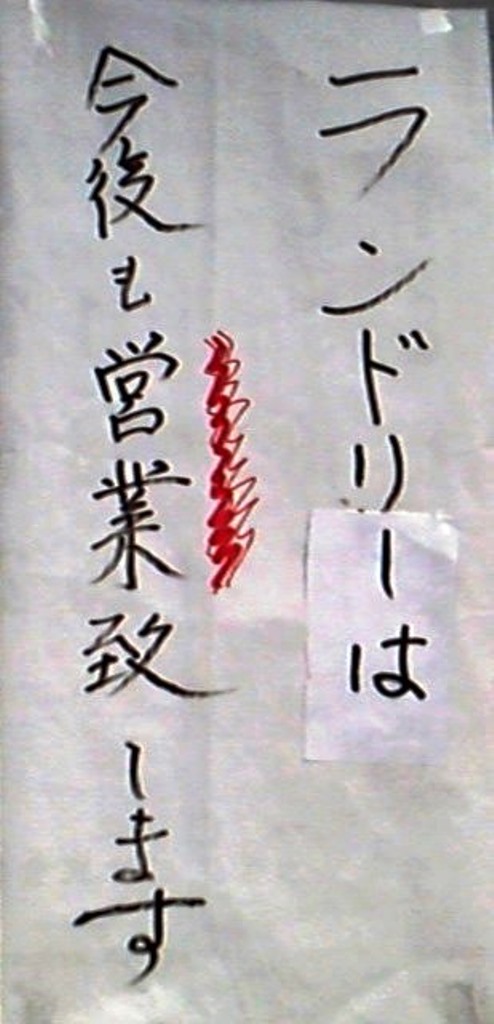 ランドリーは
今後も営業致します